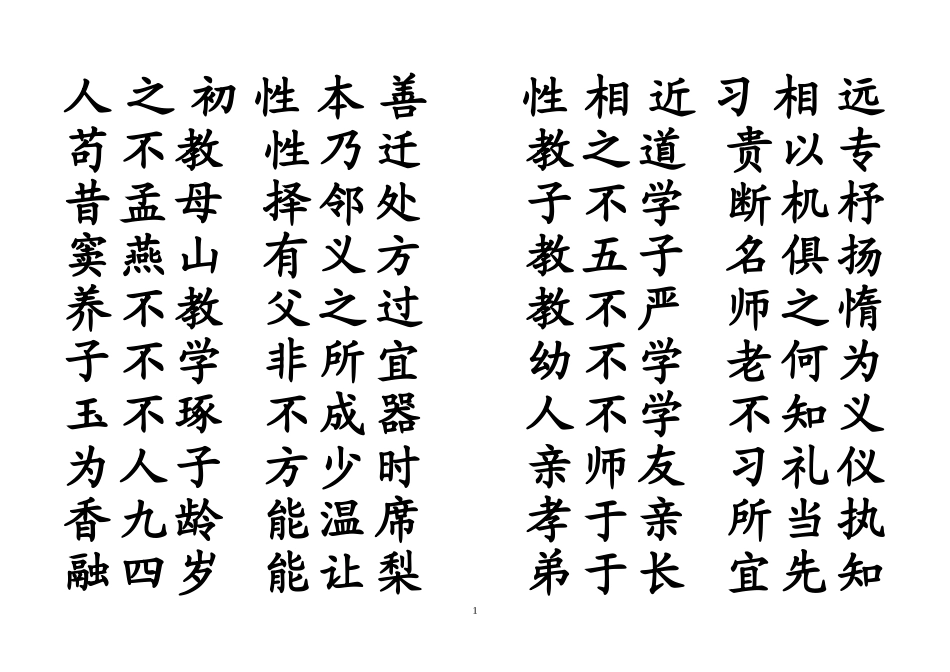 人之初 性本善 性相近 习相远
苟不教 性乃迁 教之道 贵以专
昔孟母 择邻处 子不学 断机杼
窦燕山 有义方 教五子 名俱扬
养不教 父之过 教不严 师之惰
子不学 非所宜 幼不学 老何为
玉不琢 不成器 人不学 不知义
为人子 方少时 亲师友 习礼仪
香九龄 能温席 孝于亲 所当执
融四岁 能让梨 弟于长 宜先知
1